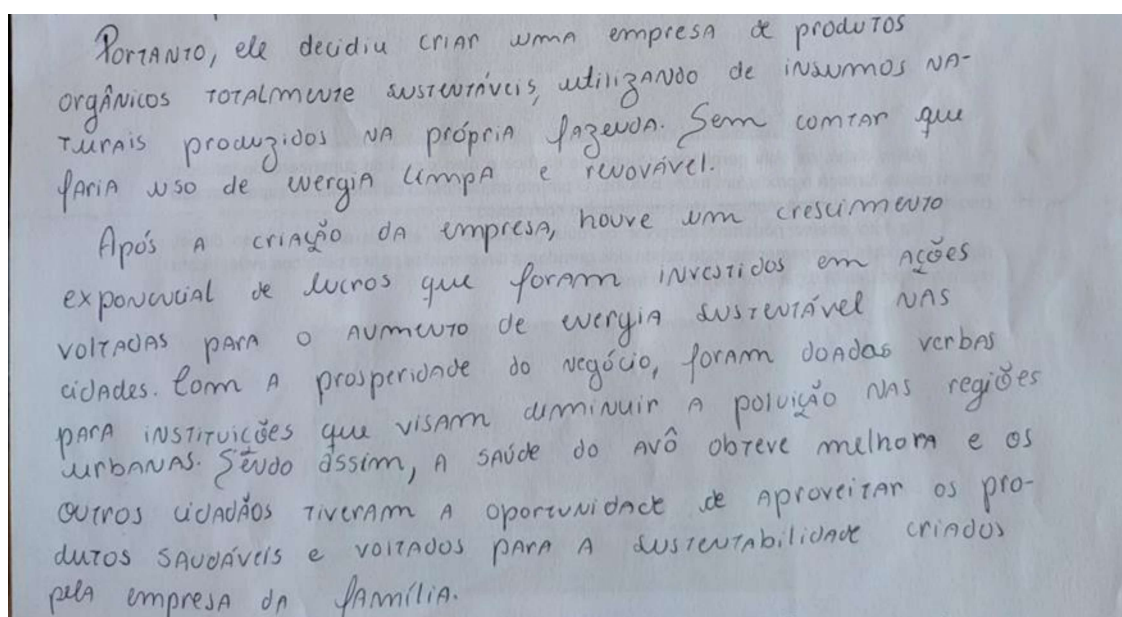 Portanto, ele decidiu criar uma empresa de produtos
orgânicos totalmente sustentáveis, utilizando de insumos na-
turais produzidos na própria fazenda. Sem contar que
faria uso de energia limpa e renovável.
Após a criação da empresa, houve um crescimento
exponencial de lucros que foram investidos em ações
voltadas para o aumento de energia sustentável nas
cidades. Com a prosperidade do negócio, foram doadas verbas
para instituições que visam diminuir a poluição nas regiões
urbanas. Sendo assim, a saúde do avô obteve melhora e os
outros cidadãos tiveram a oportunidade de aproveitar os pro-
dutos saudáveis e voltados para a sustentabilidade criados
pela empresa da família.